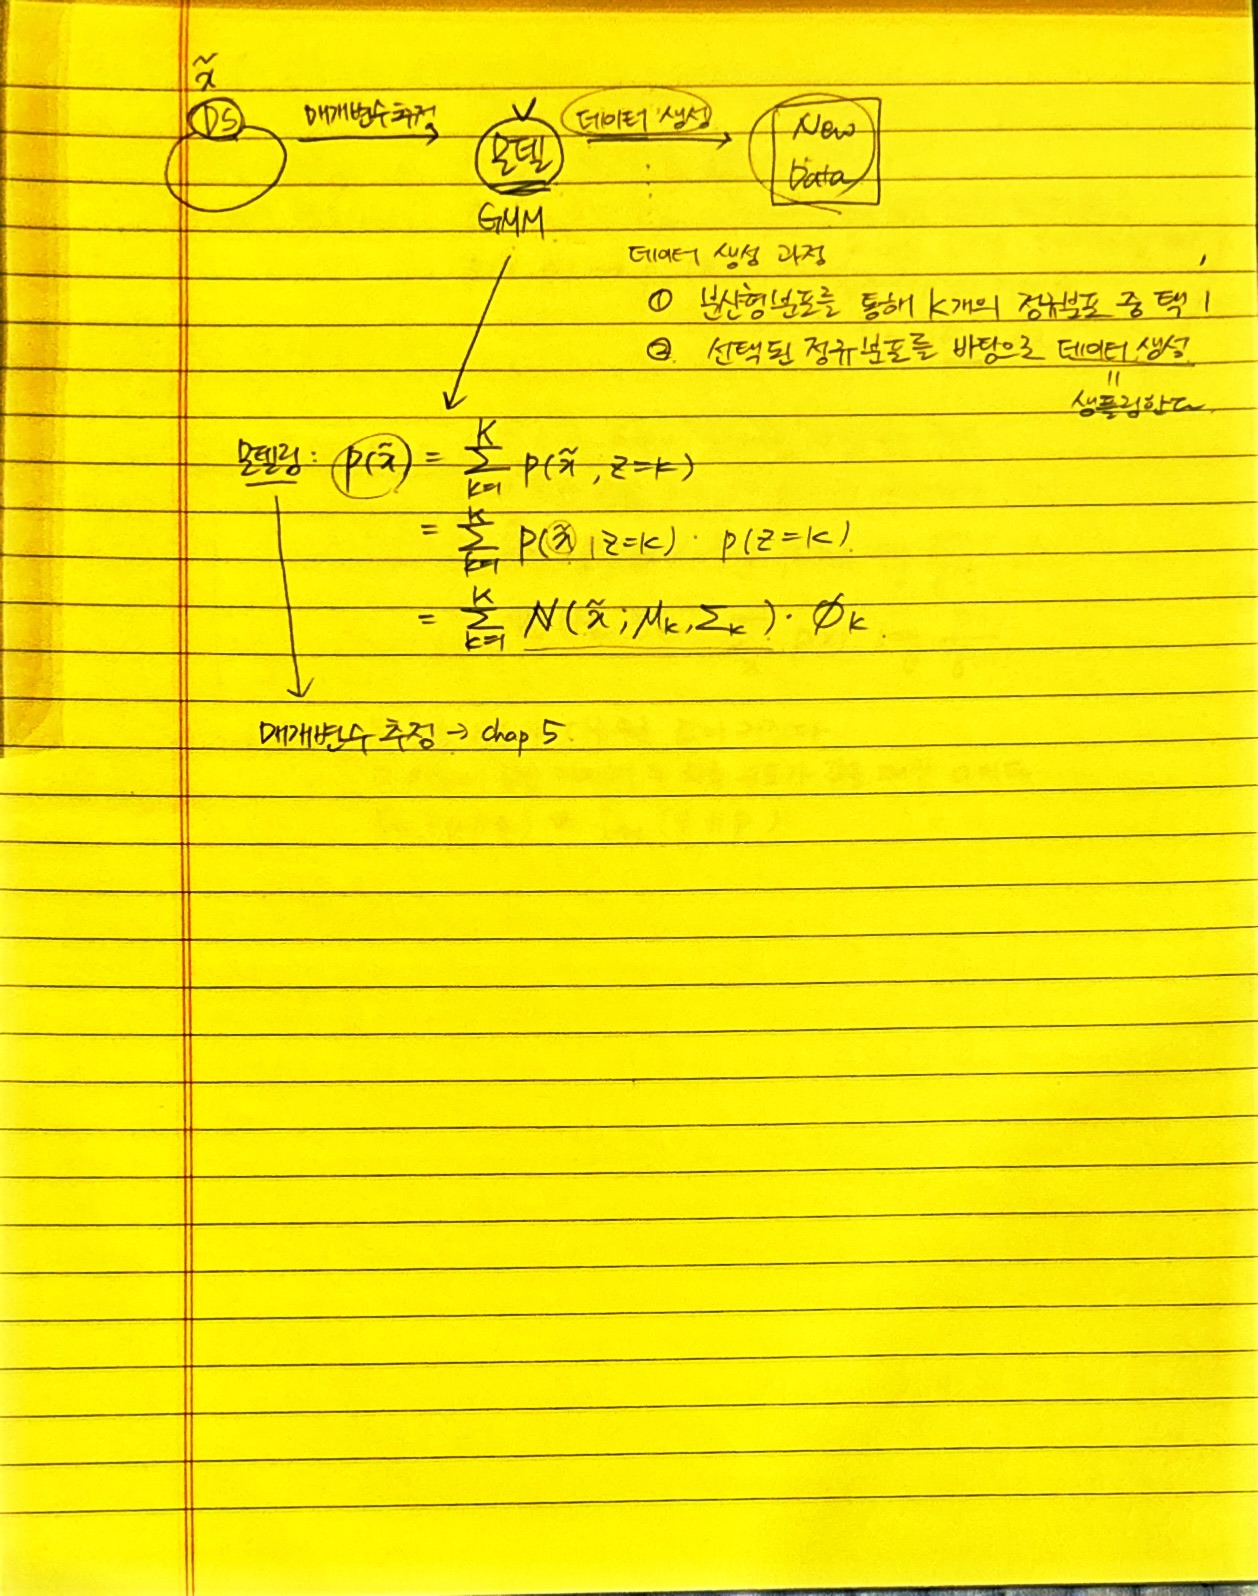 x̃
DS
매개변수 추정
모델
GMM
데이터 생성
New
Data
데이터 생성 과정
① 분산형분포를 통해 K개의 정규분포 중 택 1
② 선택된 정규분포를 바탕으로 데이터 생성
=
샘플링한다.
모델링: p(x̃) = Σ_{k=1}^{K} p(x̃, z=k)
= Σ_{k=1}^{K} p(x̃|z=k) · p(z=k).
= Σ_{k=1}^{K} N(x̃; μ_k, Σ_k) · φ_k.
매개변수 추정 → chap 5.